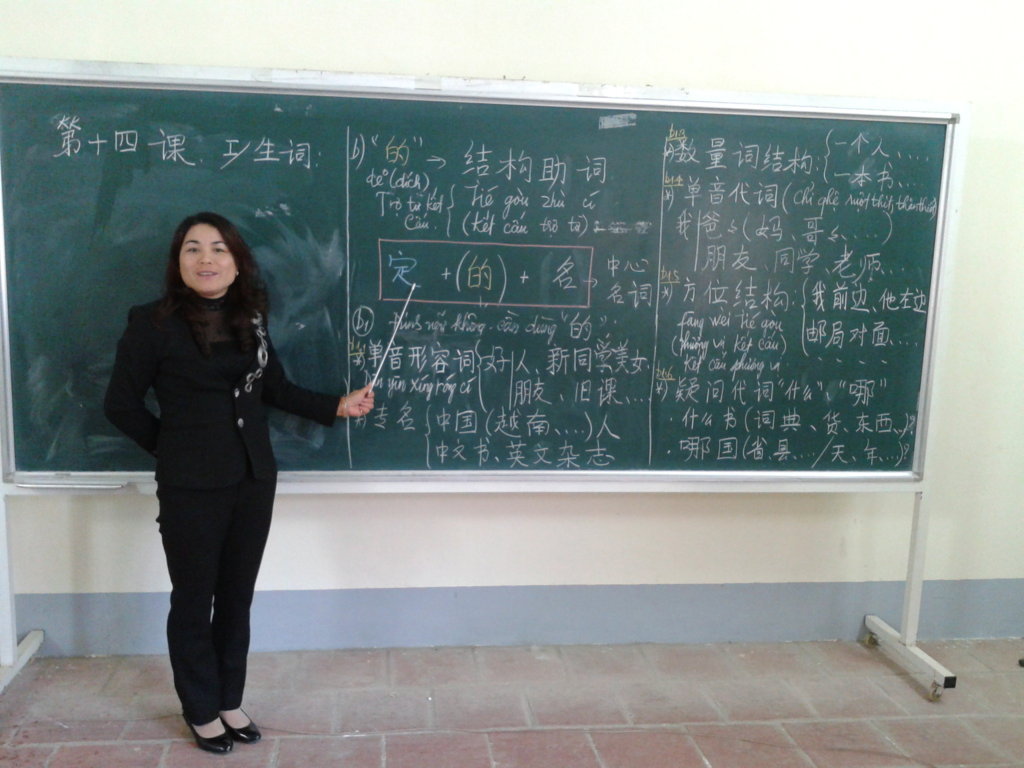 第十四课 I/生词:
b) "的" → 结构助词
de (đích) Jié gòu zhù cí
Trợ từ kết cấu. (kết cấu trợ từ)
定 + (的) + 名 → 中心名词
b1 không cần dùng "的".
单音形容词 好人、新同学美女
朋友、旧课...
专名 中国(越南、...)人
中文书、英文杂志
b1.3 数量词结构: 一个人、...
一本书、...
b1.4 单音代词 (chỉ ghệ ruột thịt, thân thiết)
我爸爸 (妈、哥、...)
朋友、同学、老师、..
b1.5 方位结构: 我前边、他左边
fāng wèi jié gòu 邮局对面、...
(phương vị kết cấu)
kết cấu phương vị
b1.6 疑问代词 "什么"、"哪"
· 什么书 (词典、货、东西...)?
· 哪国 (省、县、.../天、年...)?